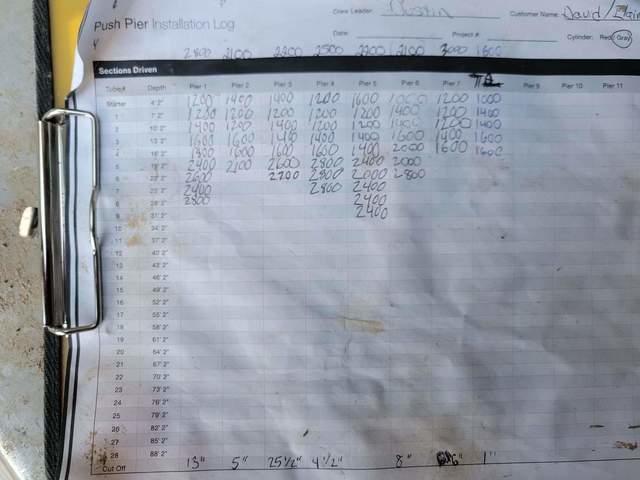 Crew Leader:
Customer Name: David /
Push Pier Installation Log
Date: Project #: Cylinder: Red Gray
2800 2100 2200 2500 2100 3000 1600
Sections Driven
Tube# Depth Pier 1 Pier 2 Pier 3 Pier 4 Pier 5 Pier 6 Pier 7 Pier 9 Pier 10 Pier 11
Starter 4' 2" 1200 1400 1400 1200 1600 1000 1200 1000
1 7' 2" 1200 1200 1200 1200 1200 1400 1200 1400
2 10' 2" 1400 1200 1400 1200 1200 1400 1200 1400
3 13' 2" 1600 1600 1600 1400 1400 1600 1400 1600
4 16' 2" 1800 1600 1600 1600 1400 2000 1600 1600
5 19' 2" 2400 2100 2600 2800 2400 2000
6 22' 2" 2600 2200 2000 2800
7 25' 2" 2400 2800 2400
8 28' 2" 2800 2400
9 31' 2" 2400
10 34' 2"
11 37' 2"
12 40' 2"
13 43' 2"
14 46' 2"
15 49' 2"
16 52' 2"
17 55' 2"
18 58' 2"
19 61' 2"
20 64' 2"
21 67' 2"
22 70' 2"
23 73' 2"
24 76' 2"
25 79' 2"
26 82' 2"
27 85' 2"
28 88' 2"
Cut Off 13" 5" 25 1/2" 4 1/2" 8" 6" 1"